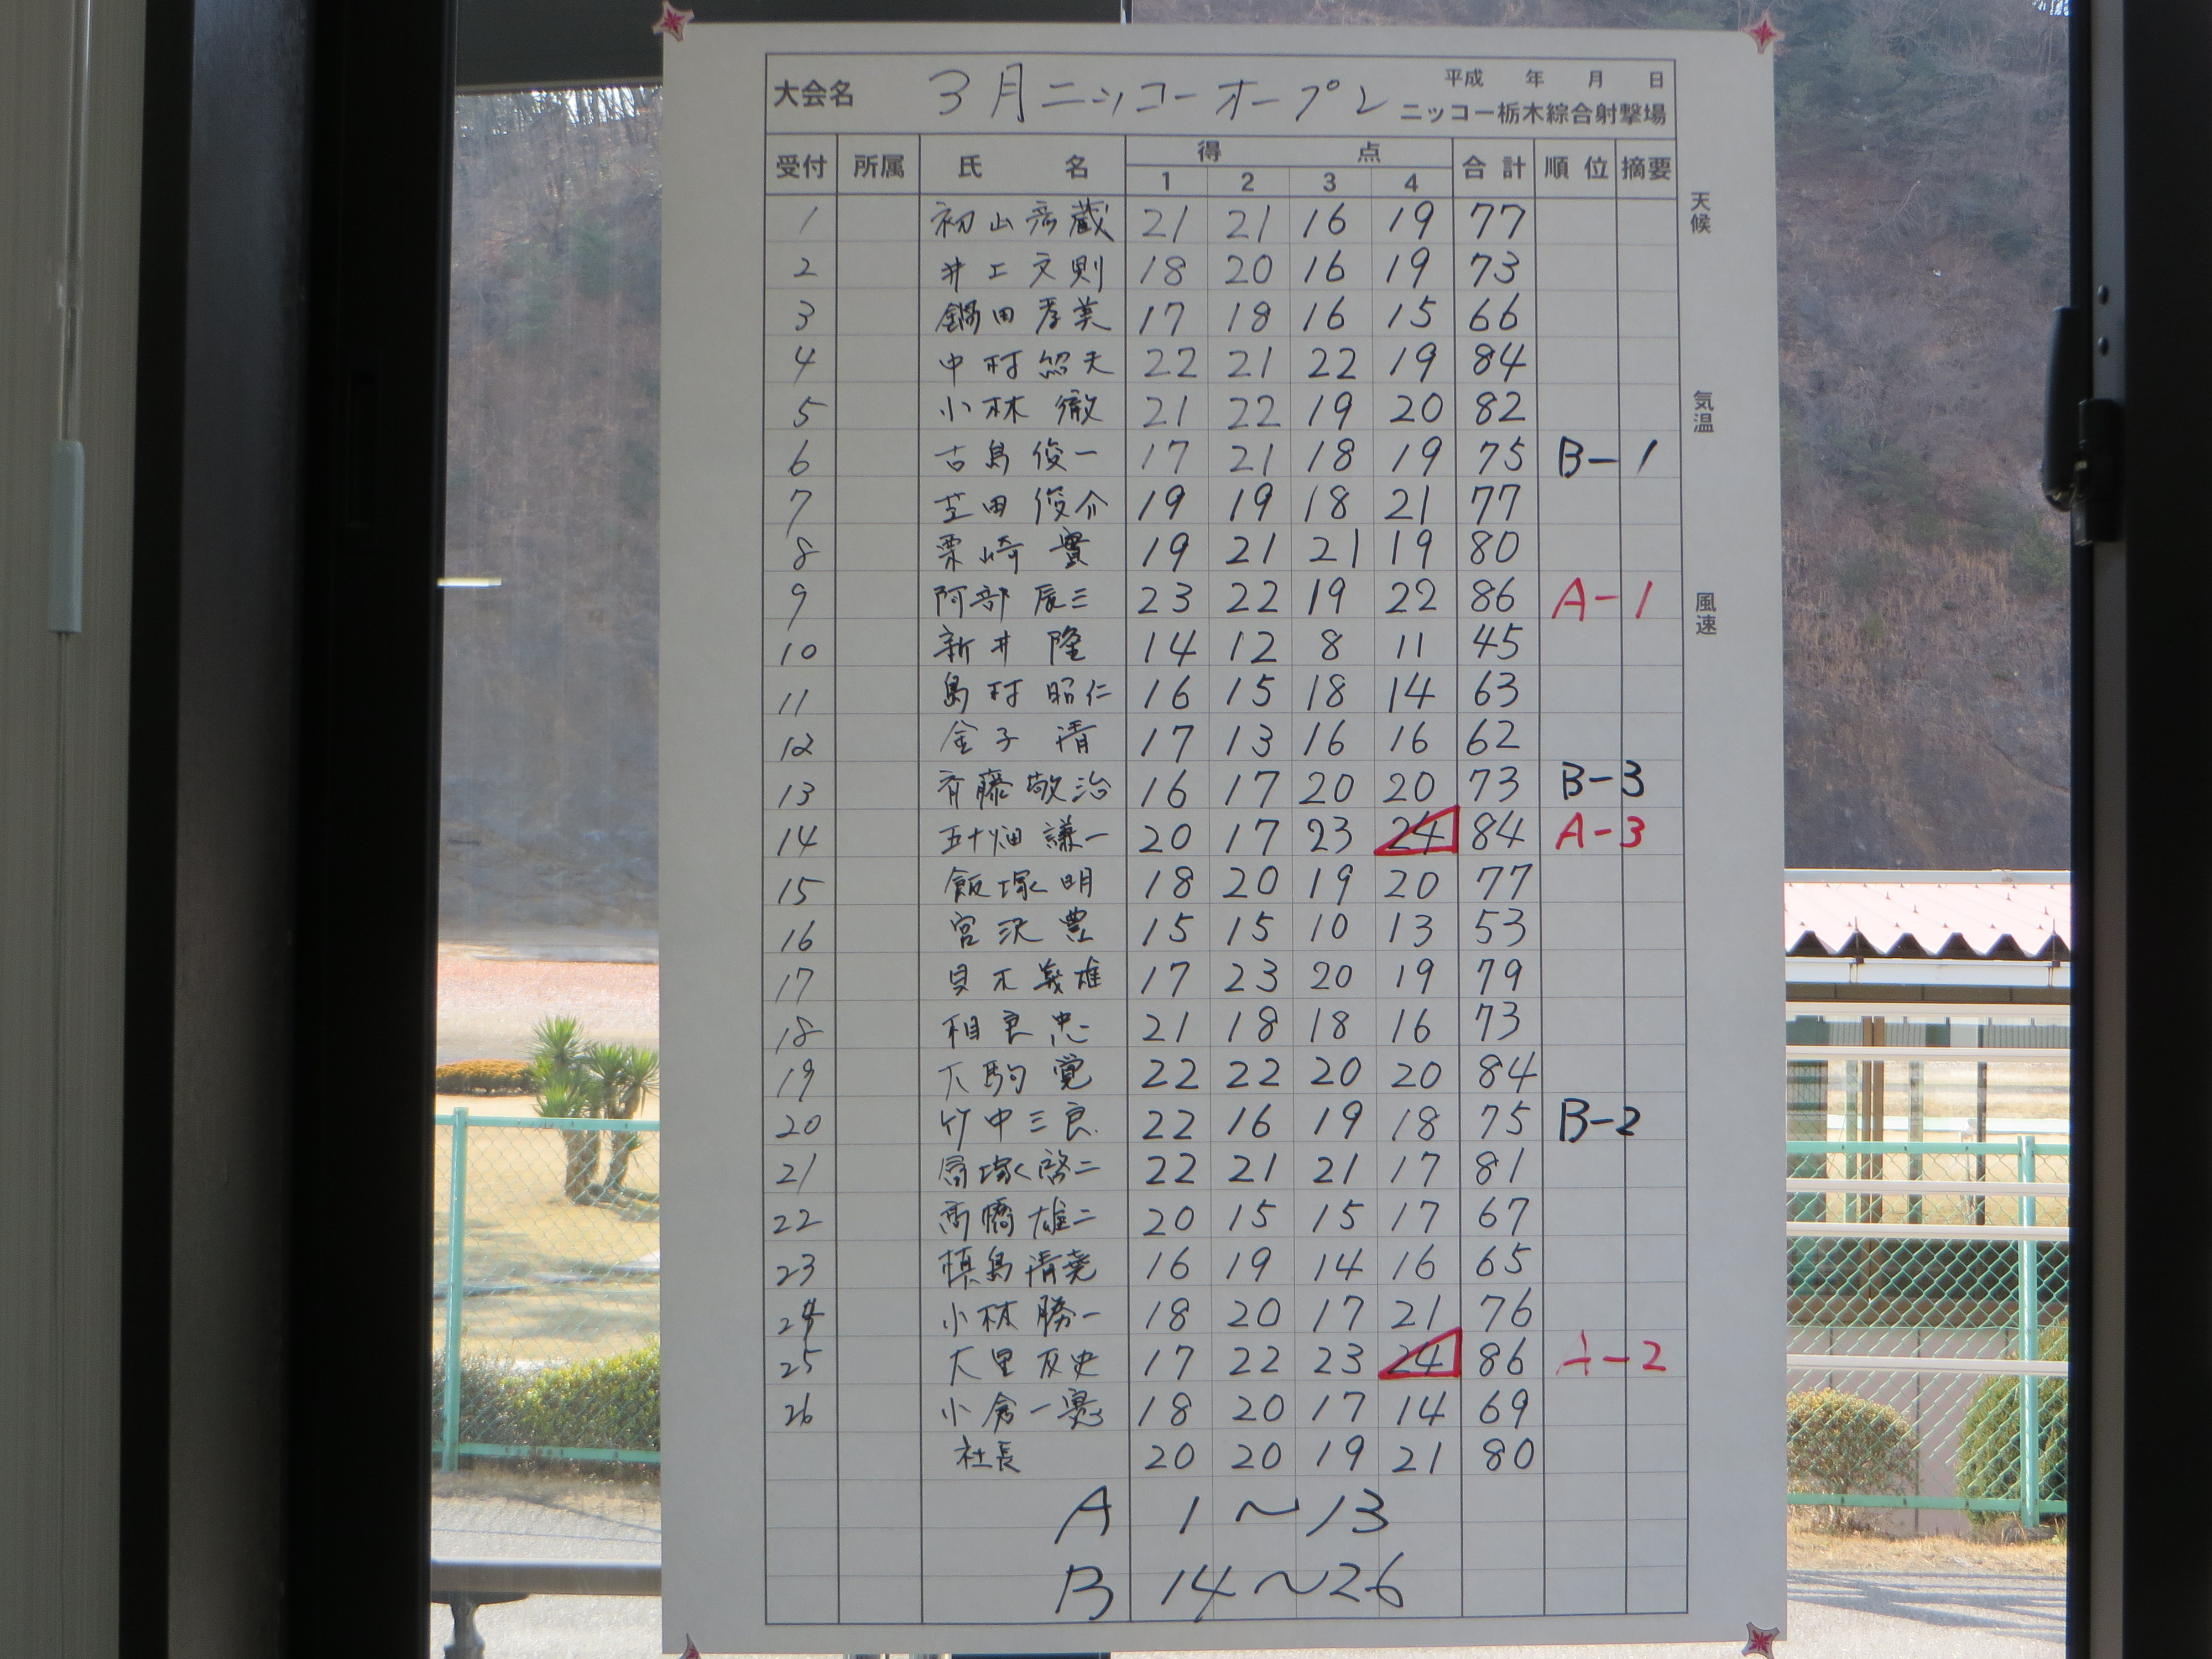 大会名 3月ニッコーオープン 平成 年 月 日
ニッコー栃木綜合射撃場
受付 所属 氏名 得点 合計 順位 摘要
1 2 3 4
1 初山彦蔵 21 21 16 19 77
2 井上文則 18 20 16 19 73
3 鍋田孝美 17 18 16 15 66
4 中村 22 21 22 19 84
5 小林 徹 21 22 19 20 82
6 古島俊一 17 21 18 19 75 B-1
7 芝田俊介 19 19 18 21 77
8 栗崎 實 19 21 21 19 80
9 阿部辰三 23 22 19 22 86 A-1
10 新井 隆 14 12 8 11 45
11 島村昭仁 16 15 18 14 63
12 金子 清 17 13 16 16 62
13 斉藤敬治 16 17 20 20 73 B-3
14 五十畑謙一 20 17 23 24 84 A-3
15 飯塚明 18 20 19 20 77
16 宮沢豊 15 15 10 13 53
17 義雄 17 23 20 19 79
18 相良忠 21 18 18 16 73
19 大駒覚 22 22 20 20 84
20 竹中三良 22 16 19 18 75 B-2
21 塚啓二 22 21 21 17 81
22 高橋雄二 20 15 15 17 67
23 槙島清尭 16 19 14 16 65
24 小林勝一 18 20 17 21 76
25 大里友史 17 22 23 24 86 A-2
26 小倉一 18 20 17 14 69
社長 20 20 19 21 80
A 1〜13
B 14〜26
天候
気温
風速